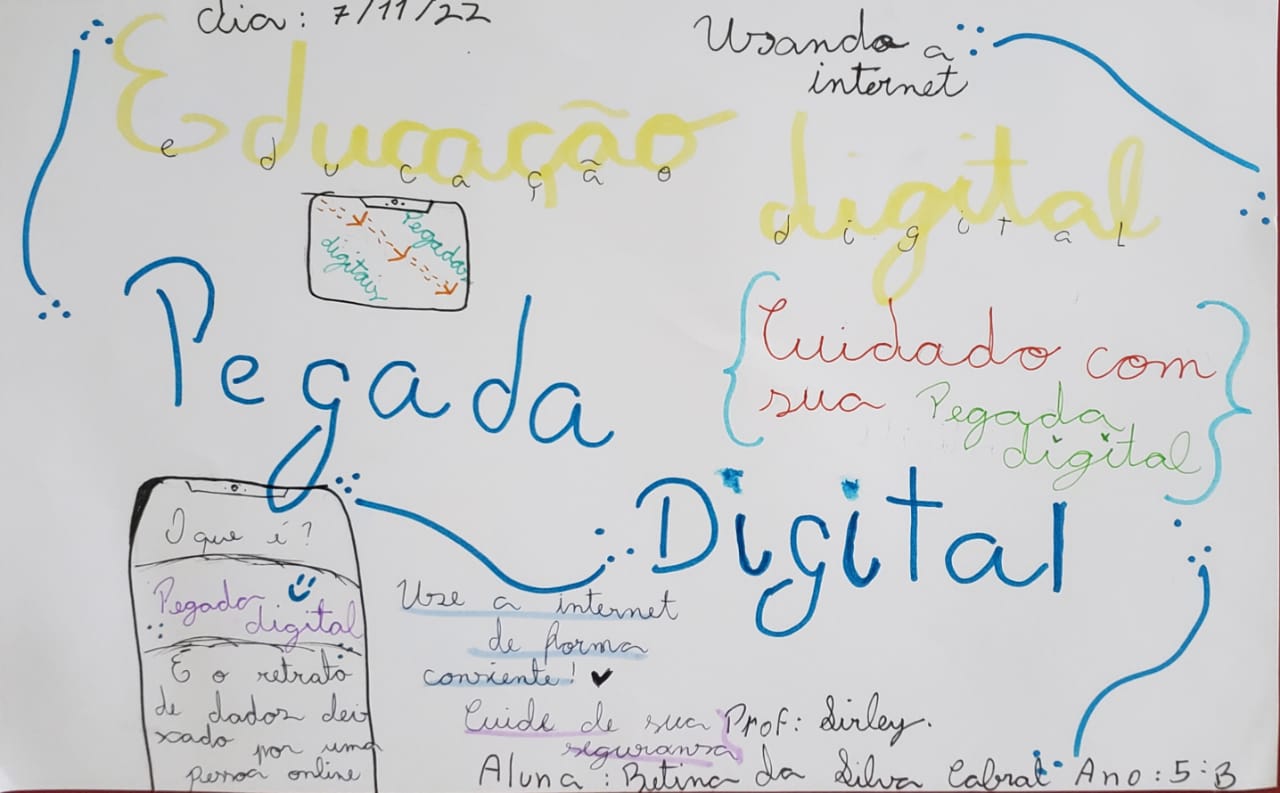 dia: 7/11/22
Usando a
internet
Educação digital
e d u c a ç ã o
d i g i t a l
Pegadas
digitais
Pegada
Digital
Cuidado com
sua Pegada
digital
O que é?
Pegada
digital
É o retrato
de dados dei
xado por uma
pessoa online
Use a internet
de forma
consiente!
Cuide de sua
seguransa
Prof: Sirley.
Aluna: Betina da Silva Cabral Ano: 5:B